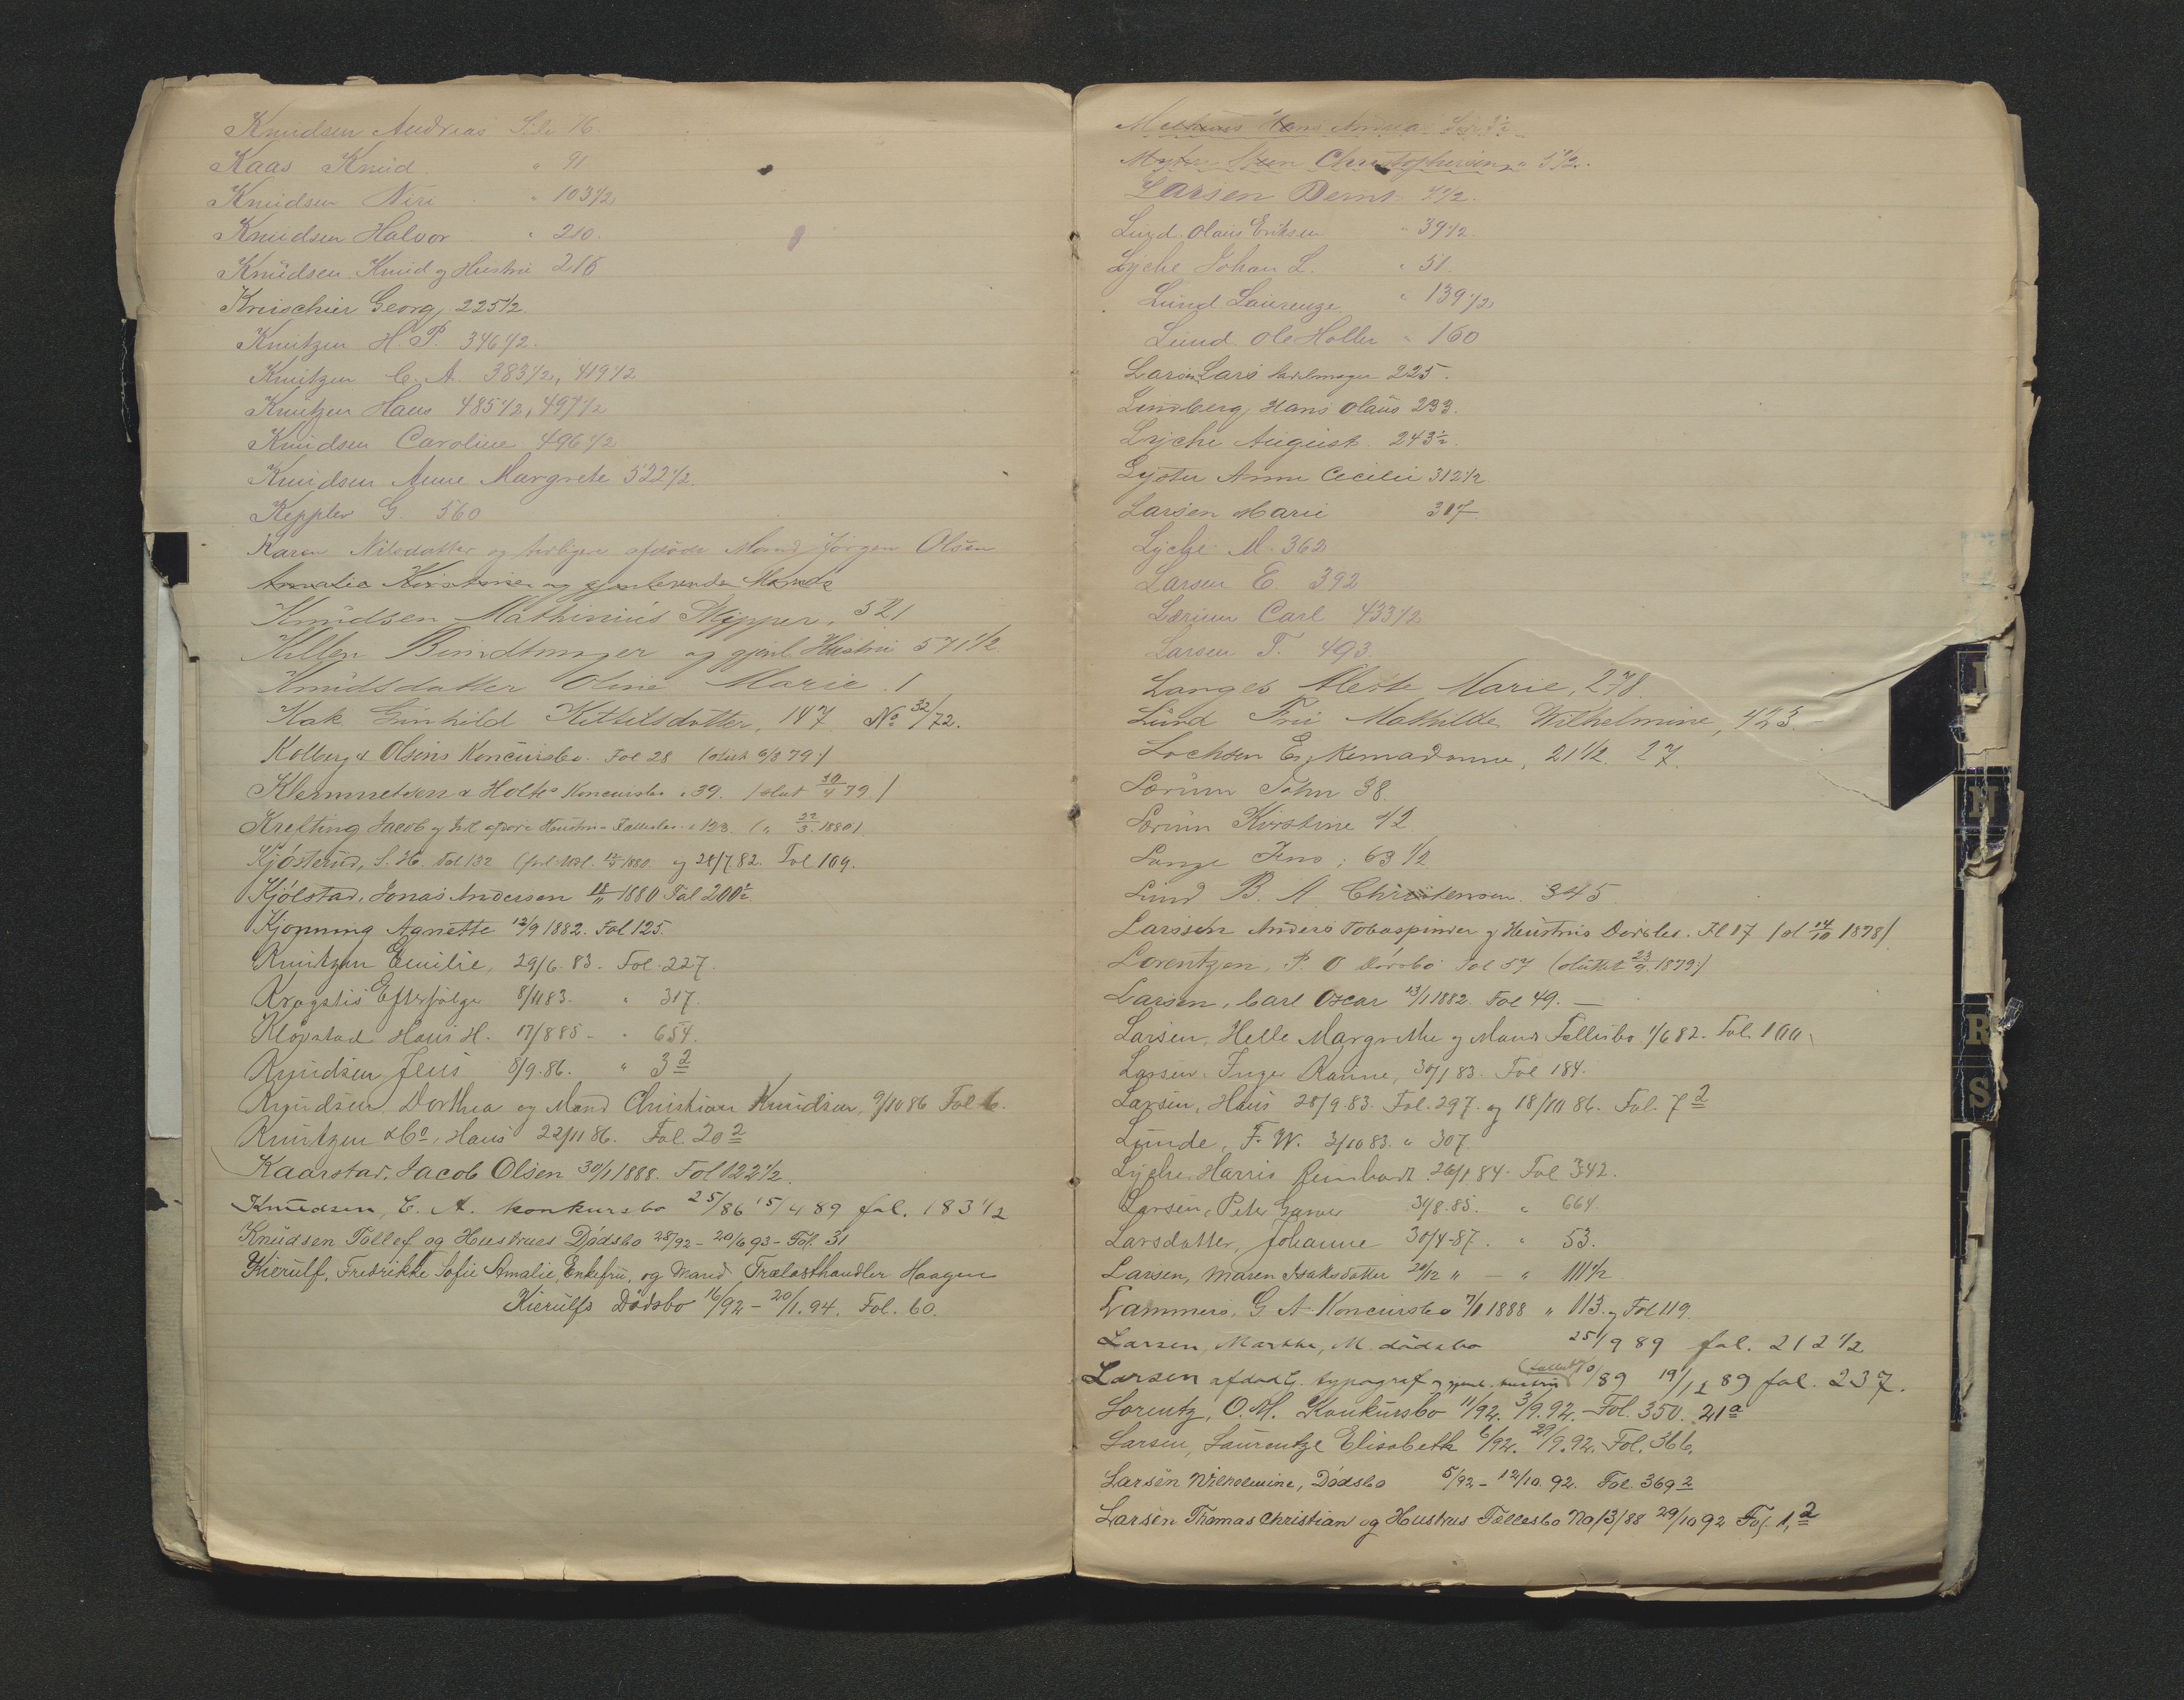 Knudsen Andreas Side 16.
Kaas Knud " 91
Knudsen Niri " 103 1/2
Knudsen Halvor " 210.
Knudsen Knud og Hustru 216
Georg 225 1/2.
Knutzen H. P. 346 1/2.
Knutzen C. A. 383 1/2, 419 1/2
Knutzen Hans 485 1/2, 497 1/2
Knudsen Caroline 496 1/2
Knudsen Anne Margrete 522 1/2.
Keppler G. 560
Karen Nilsdatter og tidligere afdøde Mand Jørgen Olsen
og gjenlevende Mands
Knudsen Mathinius Skipper, 521
Killen Bundtmager og gjenl. Hustru 571 1/2
Knudsdatter Oline Marie. 1
Kak Gunhild Kittilsdatter, 147 No 32/72.
Kolberg & Olsens Koncursbo. Fol 28 (slut 6/8 79)
Klemmetsen & Holtes Koncursbo " 39. (slut 30/4 79)
Krefting, Jacob og Hustru Fællesbo " 123. (" 22/3. 1880)
Kjøsterud, S. H. Fol 132 1880 og 28/7 82. Fol 109.
Kjølstad, Jonas Andersen 18/11 1880 Fol 200 1/2
Kjønning Agnette 12/9 1882. Fol 125.
Knutzen Emilie, 29/6. 83. Fol. 227.
Kragstis Efterfølger 8/11 83. " 317.
Klopstad Hans H. 17/8 85 - " 654.
Knudsen Jens 8/9. 86. " 3 2
Knudsen Dorthea og Mand Christian Knudsen, 9/10 86 Fol 6.
Knutzen & Co, Hans 22/11 86. Fol. 20 2
Kaarstad, Jacob Olsen 30/1 1888. Fol 122 1/2.
Knudsen, E. A. konkursbo 25/86 15/4 89 fol. 183 1/2
Knudsen Tollef og Hustrues Dødsbo 28/92 - 20/6 93 - Fol. 31
Kierulf, Fredrikke Sofie Amalie, Enkefru, og Mand Trælasthandler Haagen
Kierulfs Dødsbo 16/92 - 20/1. 94. Fol. 60.
Hans
Christophersen " 5 1/2.
Larsen Bernt 4 1/2.
Lund Olaus Eriksen " 39 1/2
Lyche Johan L. " 51.
Lund Laurenze " 139 1/2
Lund Ole Holler " 160
Larsen Lars Sadelmager 225.
Lundberg Hans Olaus 233.
Lyche August 243 1/2.
Lyster Anne Cecilie 312 1/2
Larsen Marie 317
Lyche M. 362
Larsen E 392
Lærum Carl 433 1/2
Larsen T. 493
Langes Aleste Marie, 278.
Lund Fru Mathilde Wilhelmine, 423.
Lochsen 21 1/2. 27.
Lærum John 38.
Lærum Kirstine 42.
Lange Jens; 63 1/2
Lund B. A. Christensen. 345.
Larssen Anders Tobaspinder og Hustrus Dødsbo. Fl 17 (sl 14/10 1878)
Lorentzen, P. O Dødsbo Fol 57 (sluttet 23/9. 1879)
Larsen, Carl Oscar 13/1 1882. Fol 49. —
Larsen, Helle Margrethe og Mands Fællesbo 1/6 82. Fol. 100.
Larsen, Inger Ranne, 30/1 83. Fol 184.
Larsen, Hans 28/9. 83. Fol. 297. og 18/10 86. Fol. 7 2
Lunde, F. W. 3/10 83. " 307.
Lyche, Harris Reinhardt 26/1 84. Fol 342.
Larsen, Peter Garver 31/8. 85. " 664.
Larsdatter, Johanne 30/4-87. " 53.
Larsen, Maren Isaksdatter 20/12 " — " 111 1/2
Lammers, G A Koncursbo 7/1 1888 " 113. og Fol 119.
Larsen, Marthe, M. dødsbo 25/9 89 fol. 212 1/2
Larsen afdød G. typograf og gjenl. hustru (sallus) 10/89 19/12 89 fol. 237.
Lorentz, O. M. Konkursbo 11/92. 3/9. 92. - Fol. 350. 21 a
Larsen, Laurentze Elisabeth 6/92. 29/9. 92. Fol. 366.
Larsen Wilhelmine, Dødsbo 5/92 - 12/10. 92. Fol. 369 2
Larsen Thomas Christian og Hustrus Fællesbo No 13/88 29/10 92 Fol. 1, 2
I
N
R
S